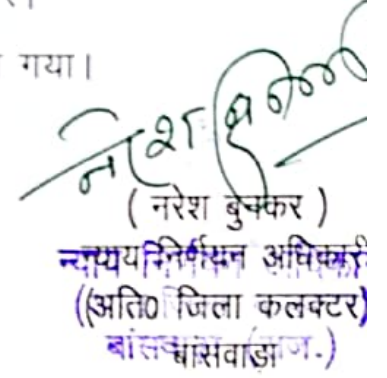 गया।
नरेश बुनकर
( नरेश बुनकर )
न्याय निर्णयन अधिकारी
(अति० जिला कलक्टर)
बांसवाड़ा (राज.)